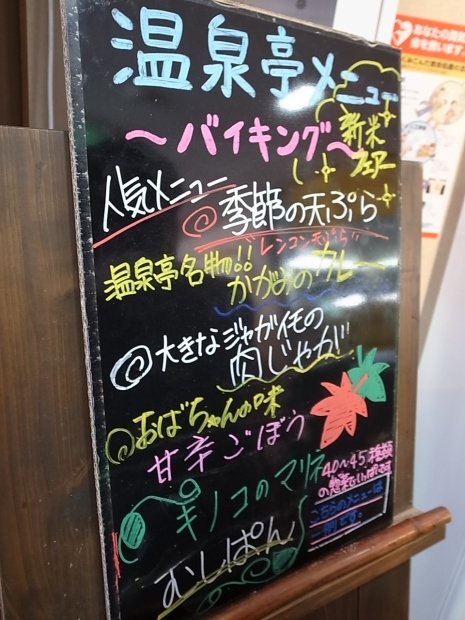 温泉亭メニュー
～バイキング～
新米
フェアー
人気メニュー
◎季節の天ぷら
"レンコン天ぷら"
温泉亭名物!!
かがみのカレー
◎大きなジャガイモの
肉じゃが
◎おばちゃんの味
甘辛ごぼう
キノコのマリネ
むしぱん
40〜45種類
の惣菜でいっぱいです
こちらのメニューは
一例です。
あなたの勇気